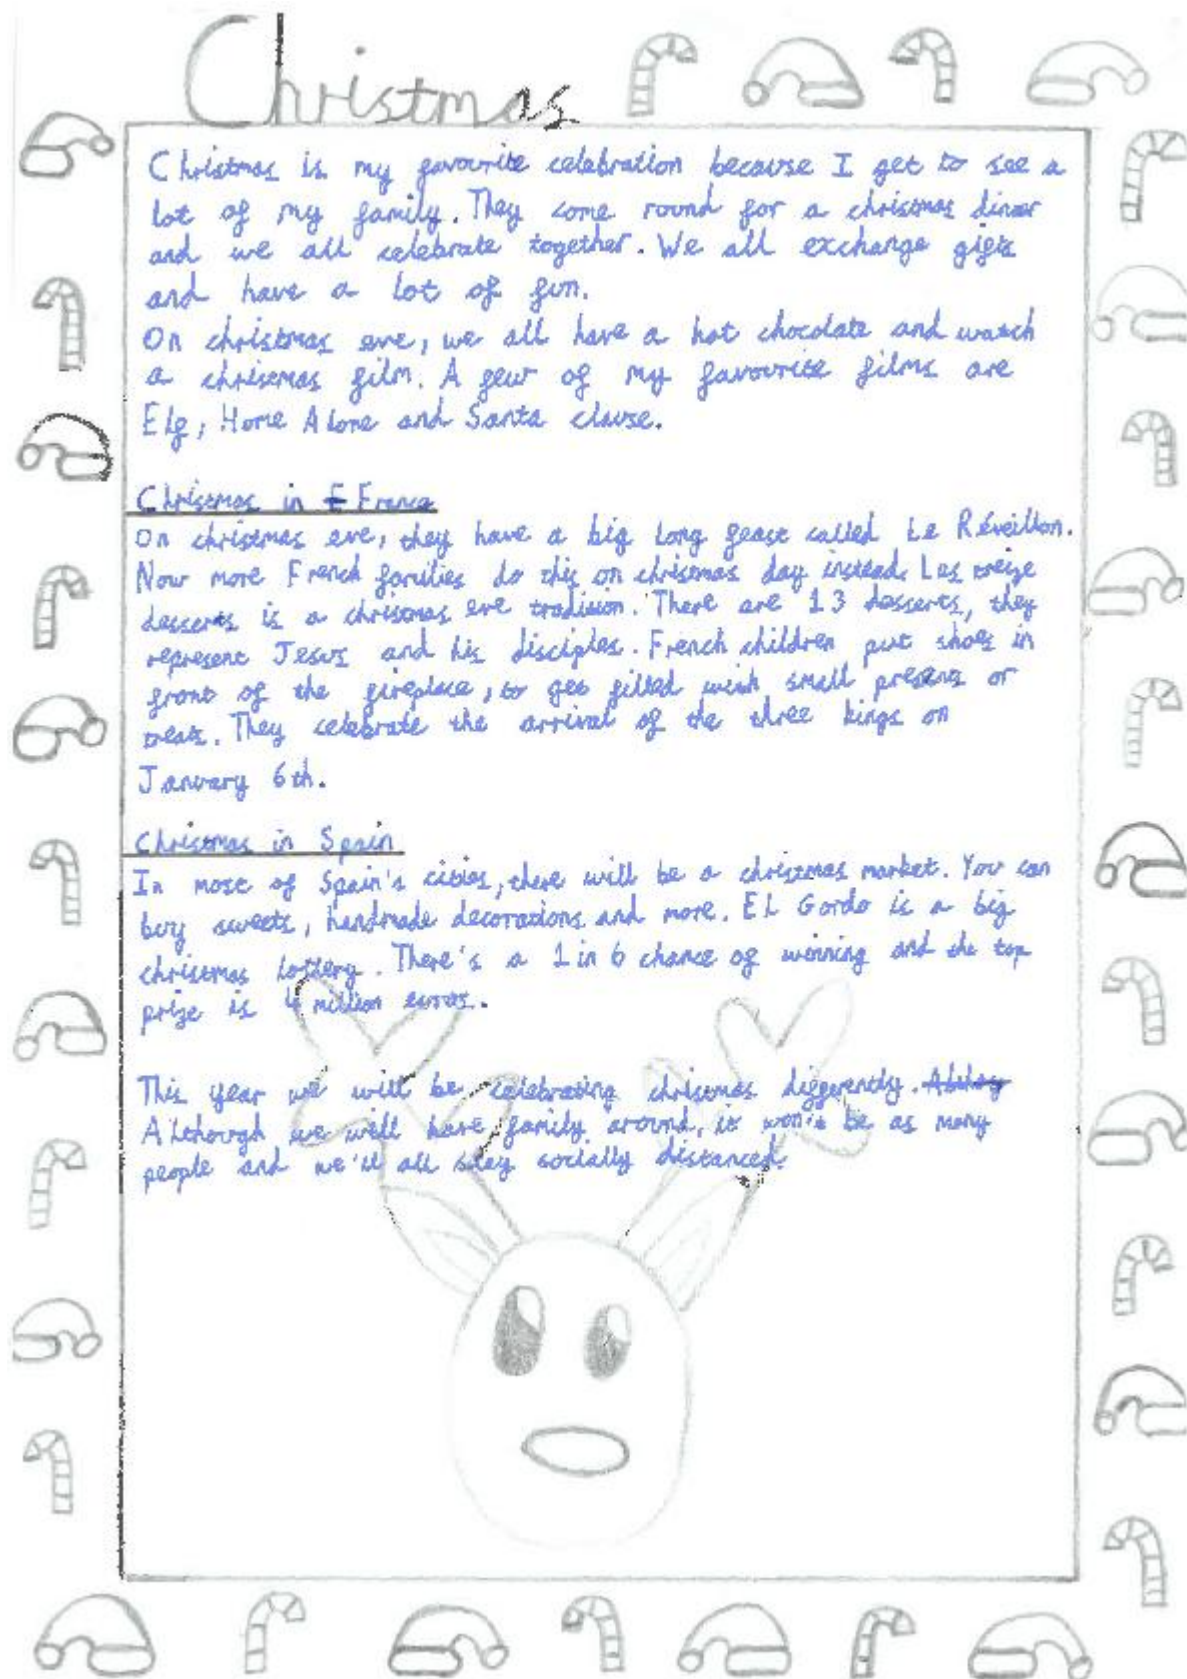 Christmas
Christmas is my favourite celebration because I get to see a
lot of my family. They come round for a christmas dinner
and we all celebrate together. We all exchange gifts
and have a lot of fun.
On christmas eve, we all have a hot chocolate and watch
a christmas film. A few of my favourite films are
Elf, Home Alone and Santa clause.
Christmas in France
On christmas eve, they have a big long feast called Le Réveillon.
Now more French families do this on christmas day instead. Les treize
desserts is a christmas eve tradition. There are 13 desserts, they
represent Jesus and his disciples. French children put shoes in
front of the fireplace, to get filled with small presents or
treats. They celebrate the arrival of the three kings on
January 6th.
Christmas in Spain
In most of Spain's cities, there will be a christmas market. You can
buy sweets, handmade decorations and more. El Gordo is a big
christmas lottery. There's a 1 in 6 chance of winning and the top
prize is 4 million euros.
This year we will be celebrating christmas differently.
Although we will have family around, it won't be as many
people and we'll all stay socially distanced.